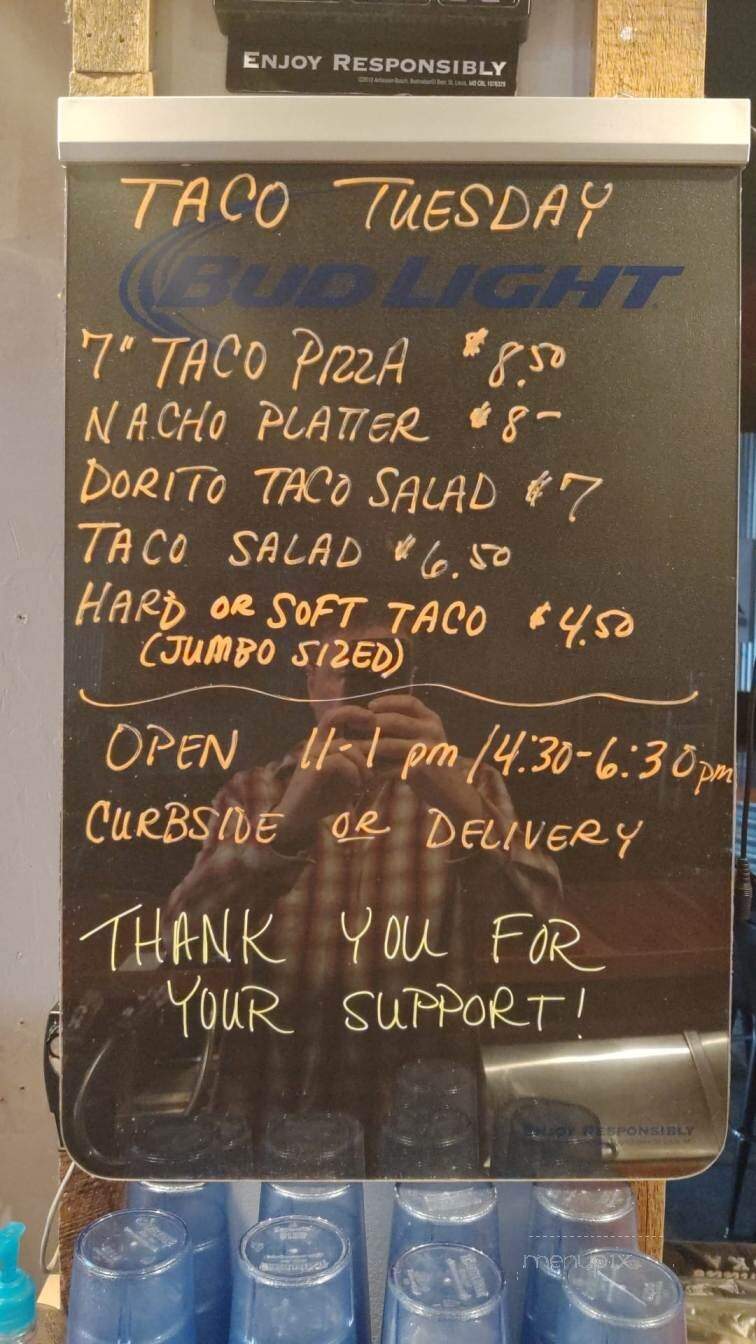 ENJOY RESPONSIBLY
TACO TUESDAY
BUD LIGHT
7" TACO PIZZA $8.50
NACHO PLATTER $8-
DORITO TACO SALAD $7
TACO SALAD $6.50
HARD OR SOFT TACO $4.50
(JUMBO SIZED)
OPEN 11-1 pm / 4:30-6:30pm
CURBSIDE OR DELIVERY
THANK YOU FOR
YOUR SUPPORT!
ENJOY RESPONSIBLY
menupix